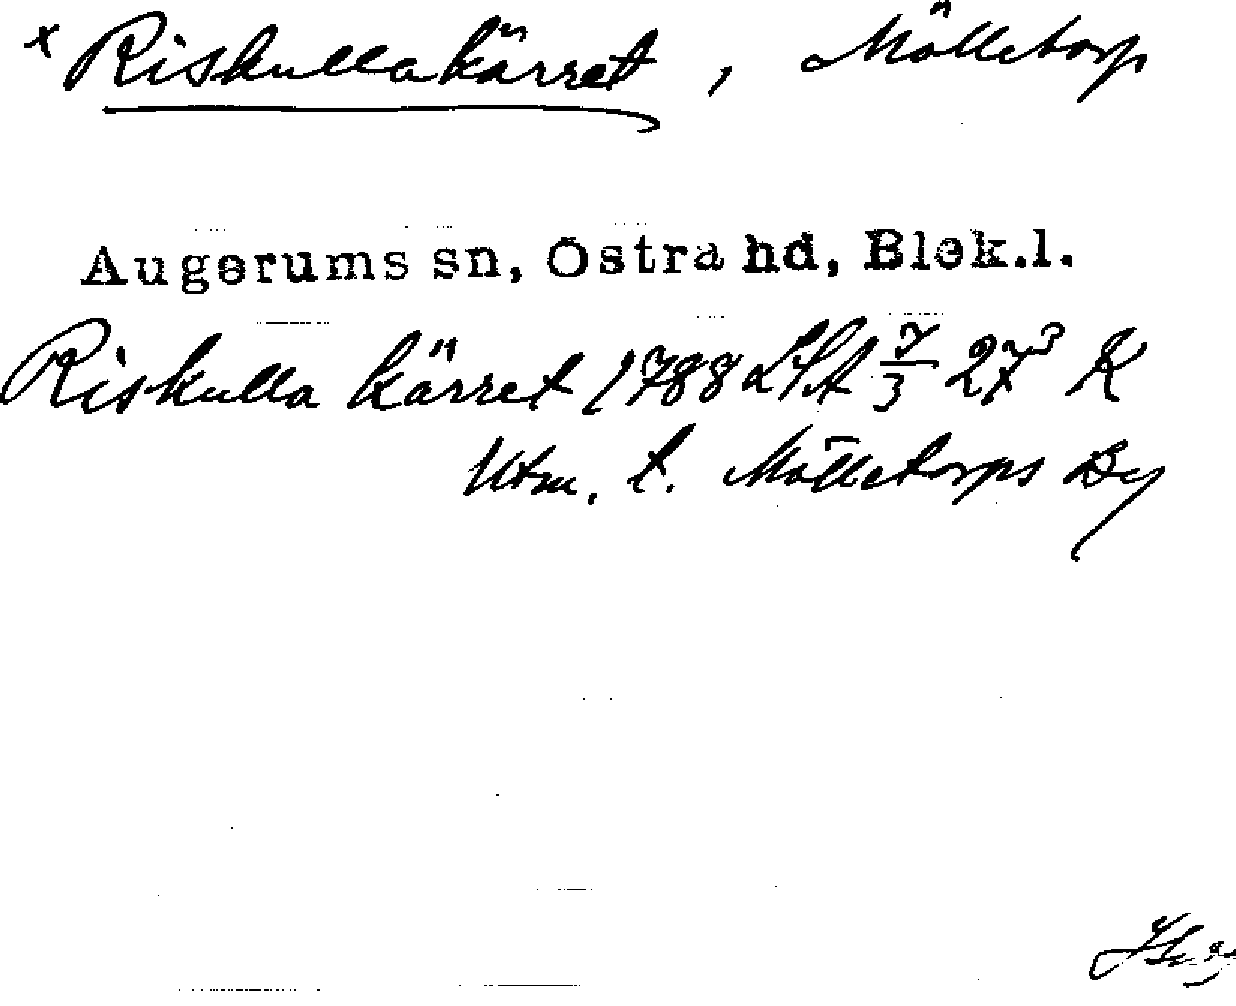 x Riskullakärret, Mölletorp
Augerums sn, Östra hd, Blek.l.
Riskulla kärret 1788 LSA 7/3 27³ K
Utm. t. Mölletorps By